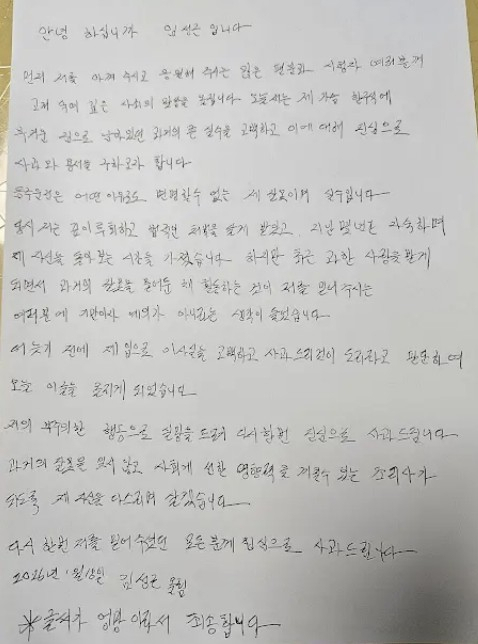 안녕 하십니까 임성근 입니다
먼저 저를 아껴 주시고 응원해 주시는 많은 팬분과 시청자 여러분께
고개 숙여 깊은 사죄의 말씀을 드립니다 오늘 저는 제 가슴 한구석에
무거운 짐으로 남아있던 과거의 큰 실수를 고백하고 이에 대해 진심으로
사과와 용서를 구하고자 합니다
음주운전은 어떤 이유로도 변명할수 없는 제 잘못이며 실수입니다
당시 저는 깊이 후회하고 법적인 처벌을 달게 받았고, 지난 몇년은 자숙하며
제 자신을 돌아보는 시간을 가졌습니다 하지만 최근 과한 사랑을 받게
되면서 과거의 잘못을 묻어둔 채 활동하는 것이 저를 믿어주시는
여러분에 기만이자 예의가 아니라는 생각이 들었습니다
더 늦기 전에 제 입으로 이사실을 고백하고 사과드리것이 도리라고 판단하여
오늘 이글을 올리게 되었습니다
저의 부주의한 행동으로 실망을 드려 다시한번 진심으로 사과드립니다
과거의 잘못을 잊지 않고 사회에 선한 영향력으로 지킬수 있는 조리사가
되도록 제 자신을 다스리며 살겠습니다
다시 한번 저를 믿어주셨던 모든 분께 진심으로 사과드립니다
2026년 1월 임성근 올림
*글씨가 엉망 이라서 죄송합니다